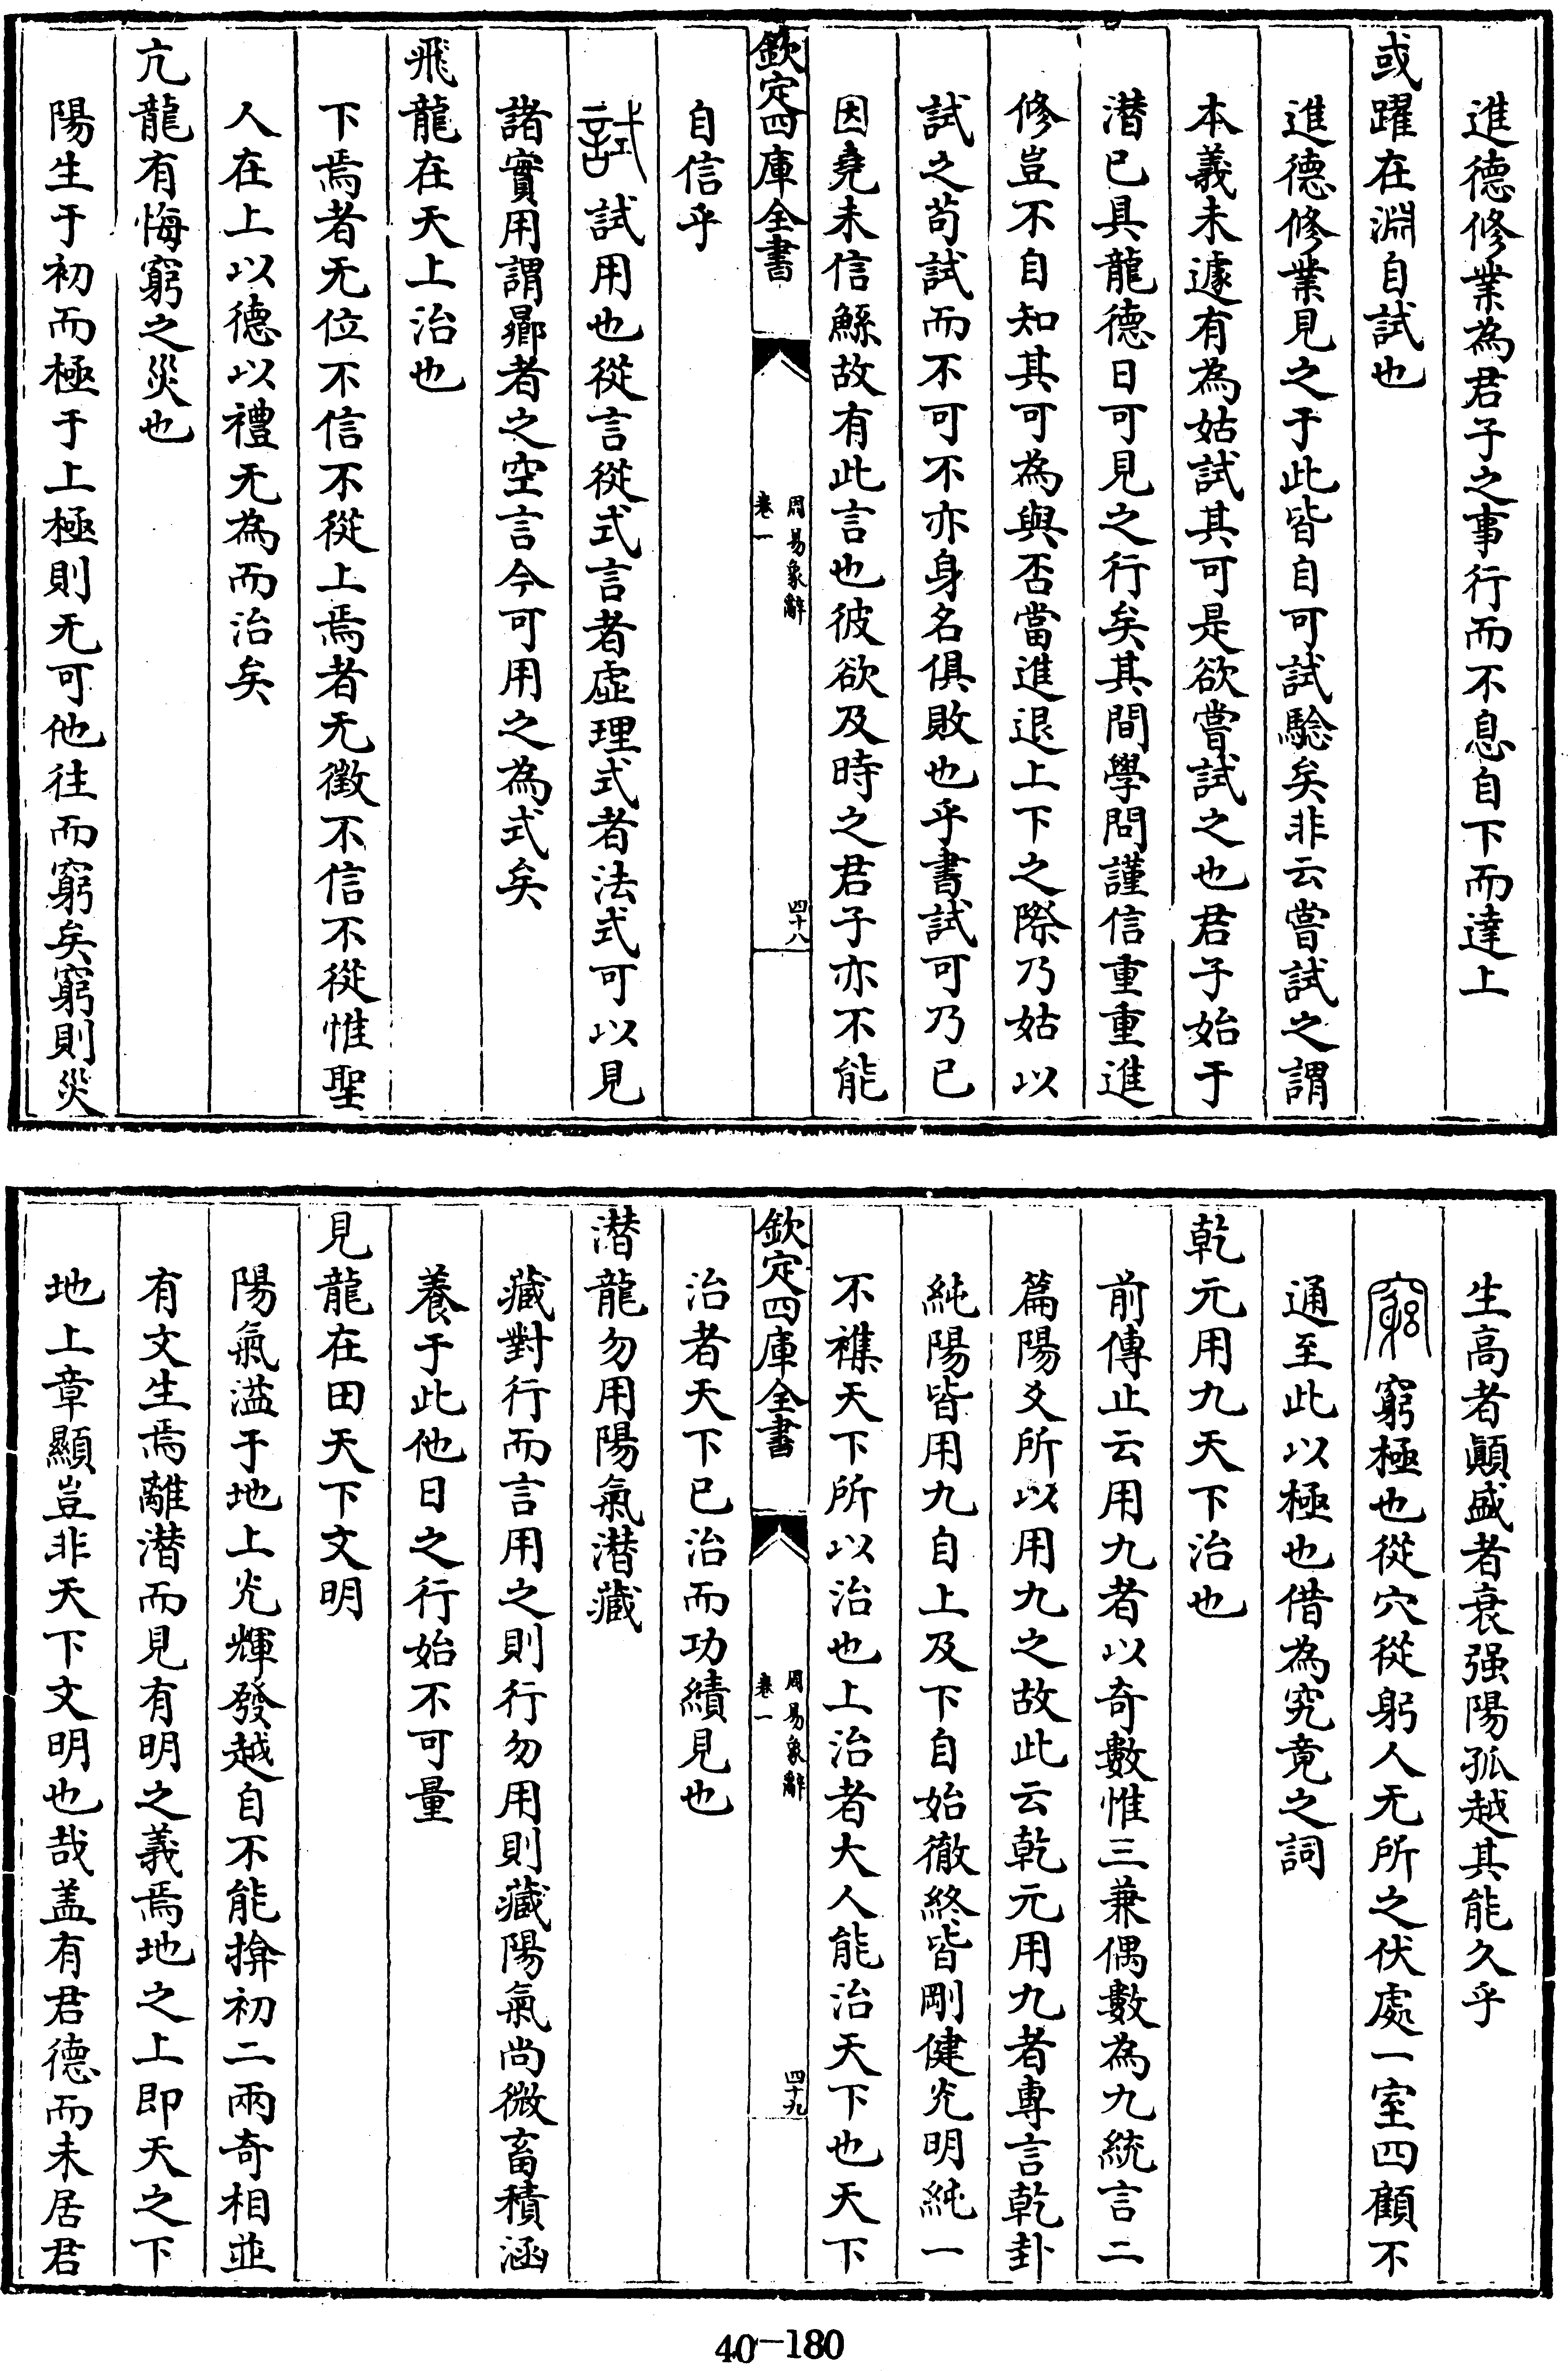 進德修業為君子之事行而不息自下而達上
或躍在淵自試也
進德修業見之于此皆自可試驗矣非云嘗試之謂
本義未遽有為姑試其可是欲嘗試之也君子始于
潛已具龍德日可見之行矣其間學問謹信重重進
修豈不自知其可為與否當進退上下之際乃姑以
試之茍試而不可不亦身名俱敗也乎書試可乃已
因堯未信鯀故有此言也彼欲及時之君子亦不能
欽定四庫全書
周易象辭
卷一
四十八
自信乎
試試用也從言從式言者虛理式者法式可以見
諸實用謂曏者之空言今可用之為式矣
飛龍在天上治也
下焉者无位不信不從上焉者无徵不信不從惟聖
人在上以德以禮无為而治矣
亢龍有悔窮之災也
陽生于初而極于上極則无可他往而窮矣窮則災
生高者顚盛者衰强陽孤越其能久乎
窮窮極也從穴從躬人无所之伏處一室四顧不
通至此以極也借為究竟之詞
乾元用九天下治也
前傳止云用九者以奇數惟三兼偶數為九統言二
篇陽爻所以用九之故此云乾元用九者專言乾卦
純陽皆用九自上及下自始徹終皆剛健光明純一
不襍天下所以治也上治者大人能治天下也天下
欽定四庫全書
周易象辭
卷一
四十九
治者天下已治而功績見也
潛龍勿用陽氣潛藏
藏對行而言用之則行勿用則藏陽氣尚微畜積涵
養于此他日之行始不可量
見龍在田天下文明
陽氣溢于地上光輝發越自不能揜初二兩奇相並
有文生焉離潛而見有明之義焉地之上即天之下
地上章顯豈非天下文明也哉盖有君德而未居君
40-180